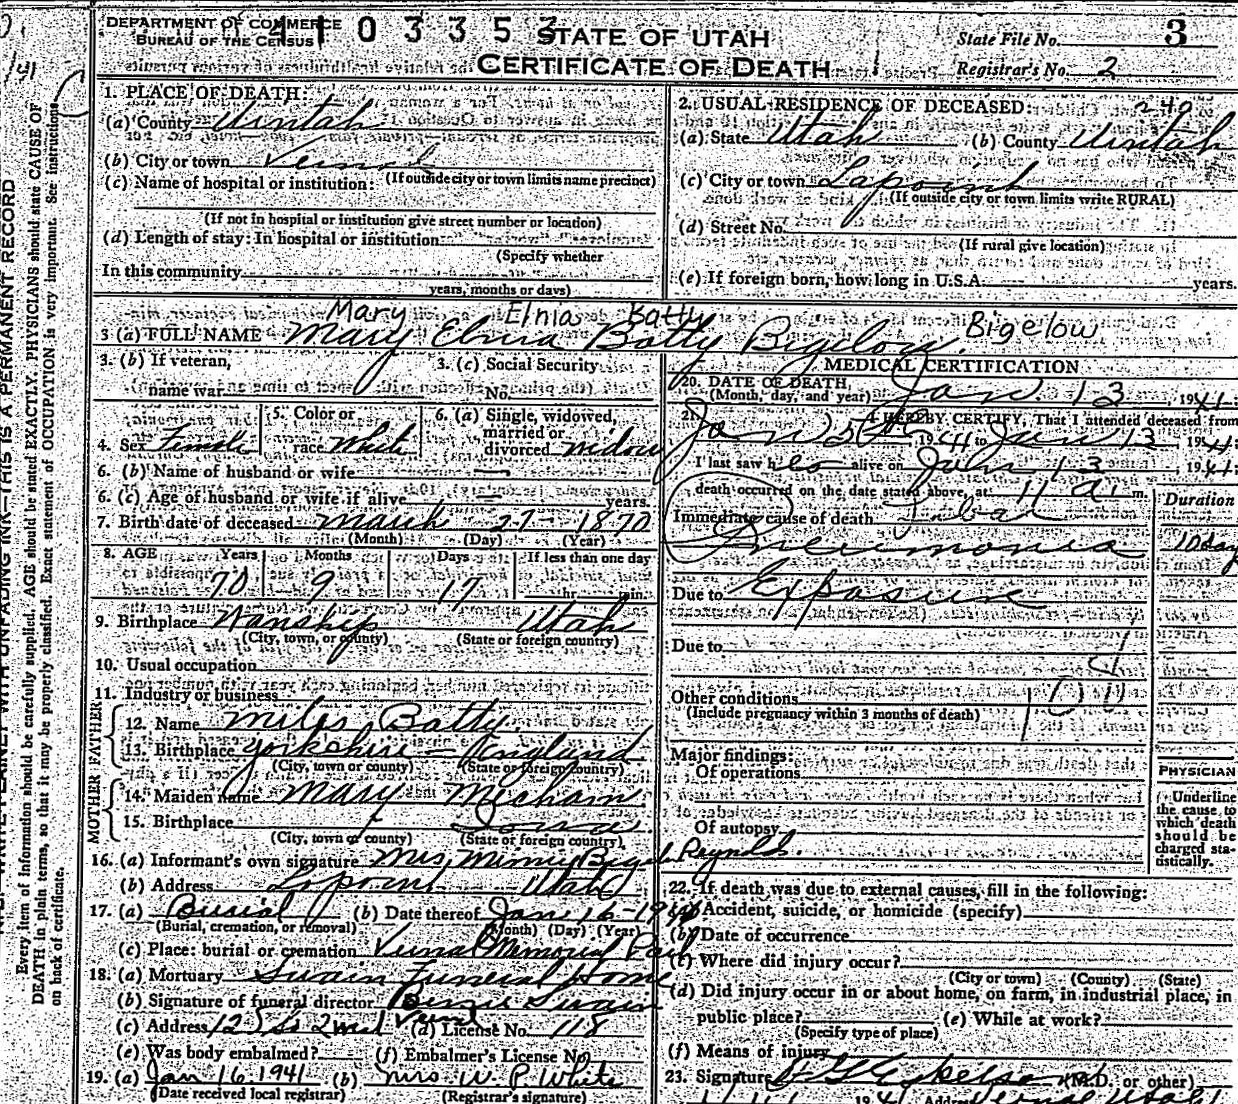 DEPARTMENT OF COMMERCE
BUREAU OF THE CENSUS
4103353
STATE OF UTAH
CERTIFICATE OF DEATH
State File No. 3
Registrar's No. 2
1. PLACE OF DEATH:
(a) County Uintah
(b) City or town Vernal
(If outside city or town limits name precinct)
(c) Name of hospital or institution:
(If not in hospital or institution give street number or location)
(d) Length of stay: In hospital or institution
(Specify whether
In this community
years, months or days)
2. USUAL RESIDENCE OF DECEASED: 240
(a) State Utah (b) County Uintah
(c) City or town Lapoint
(If outside city or town limits write RURAL)
(d) Street No.
(If rural give location)
(e) If foreign born, how long in U.S.A. years.
Mary Elnia Batty Bigelow
3 (a) FULL NAME Mary Elnia Batty Bigelow
3. (b) If veteran,
name war
3. (c) Social Security
No.
4. Sex Female
5. Color or
race White
6. (a) Single, widowed,
married or
divorced widow
6. (b) Name of husband or wife —
6. (c) Age of husband or wife if alive — years
7. Birth date of deceased March 27 - 1870
(Month) (Day) (Year)
8. AGE Years Months Days If less than one day
70 9 17 hr. min.
9. Birthplace Wanship Utah
(City, town, or county) (State or foreign country)
10. Usual occupation
11. Industry or business
FATHER
12. Name Miles Batty
13. Birthplace Yorkshire - England
(City, town or county) (State or foreign country)
MOTHER
14. Maiden name Mary Mecham
15. Birthplace Iowa
(City, town or county) (State or foreign country)
16. (a) Informant's own signature Mrs. Minny Reynolds.
(b) Address Lapoint Utah
17. (a) Burial (b) Date thereof Jan. 16 - 1941
(Burial, cremation, or removal) (Month) (Day) (Year)
(c) Place: burial or cremation Vernal Memorial Park
18. (a) Mortuary Swain Funeral Home
(b) Signature of funeral director Swain
(c) Address 125 So 2nd Vernal (d) License No. 118
(e) Was body embalmed? (f) Embalmer's License No.
19. (a) Jan 16 1941 (b) Mrs. W. P. White
(Date received local registrar) (Registrar's signature)
MEDICAL CERTIFICATION
20. DATE OF DEATH, Jan. 13, 1941.
(Month, day, and year)
21. I HEREBY CERTIFY, That I attended deceased from
Jan 5th 1941 to Jan 13, 1941.
I last saw h alive on Jan 13, 1941.
death occurred on the date stated above, at 11 a. m.
Duration
Immediate cause of death Lobar
Pneumonia 10 days
Due to Exposure
Due to
Other conditions
(Include pregnancy within 3 months of death)
Major findings:
Of operations
Of autopsy
PHYSICIAN
Underline
the cause to
which death
should be
charged sta-
tistically.
22. If death was due to external causes, fill in the following:
(a) Accident, suicide, or homicide (specify)
(b) Date of occurrence
(c) Where did injury occur?
(City or town) (County) (State)
(d) Did injury occur in or about home, on farm, in industrial place, in
public place? (e) While at work?
(Specify type of place)
(f) Means of injury
23. Signature (M.D. or other)
Address Vernal Utah
WRITE PLAINLY WITH UNFADING INK—THIS IS A PERMANENT RECORD
Every item of information should be carefully supplied. AGE should be stated EXACTLY. PHYSICIANS should state CAUSE OF
DEATH in plain terms, so that it may be properly classified. Exact statement of OCCUPATION is very important. See instructions
on back of certificate.